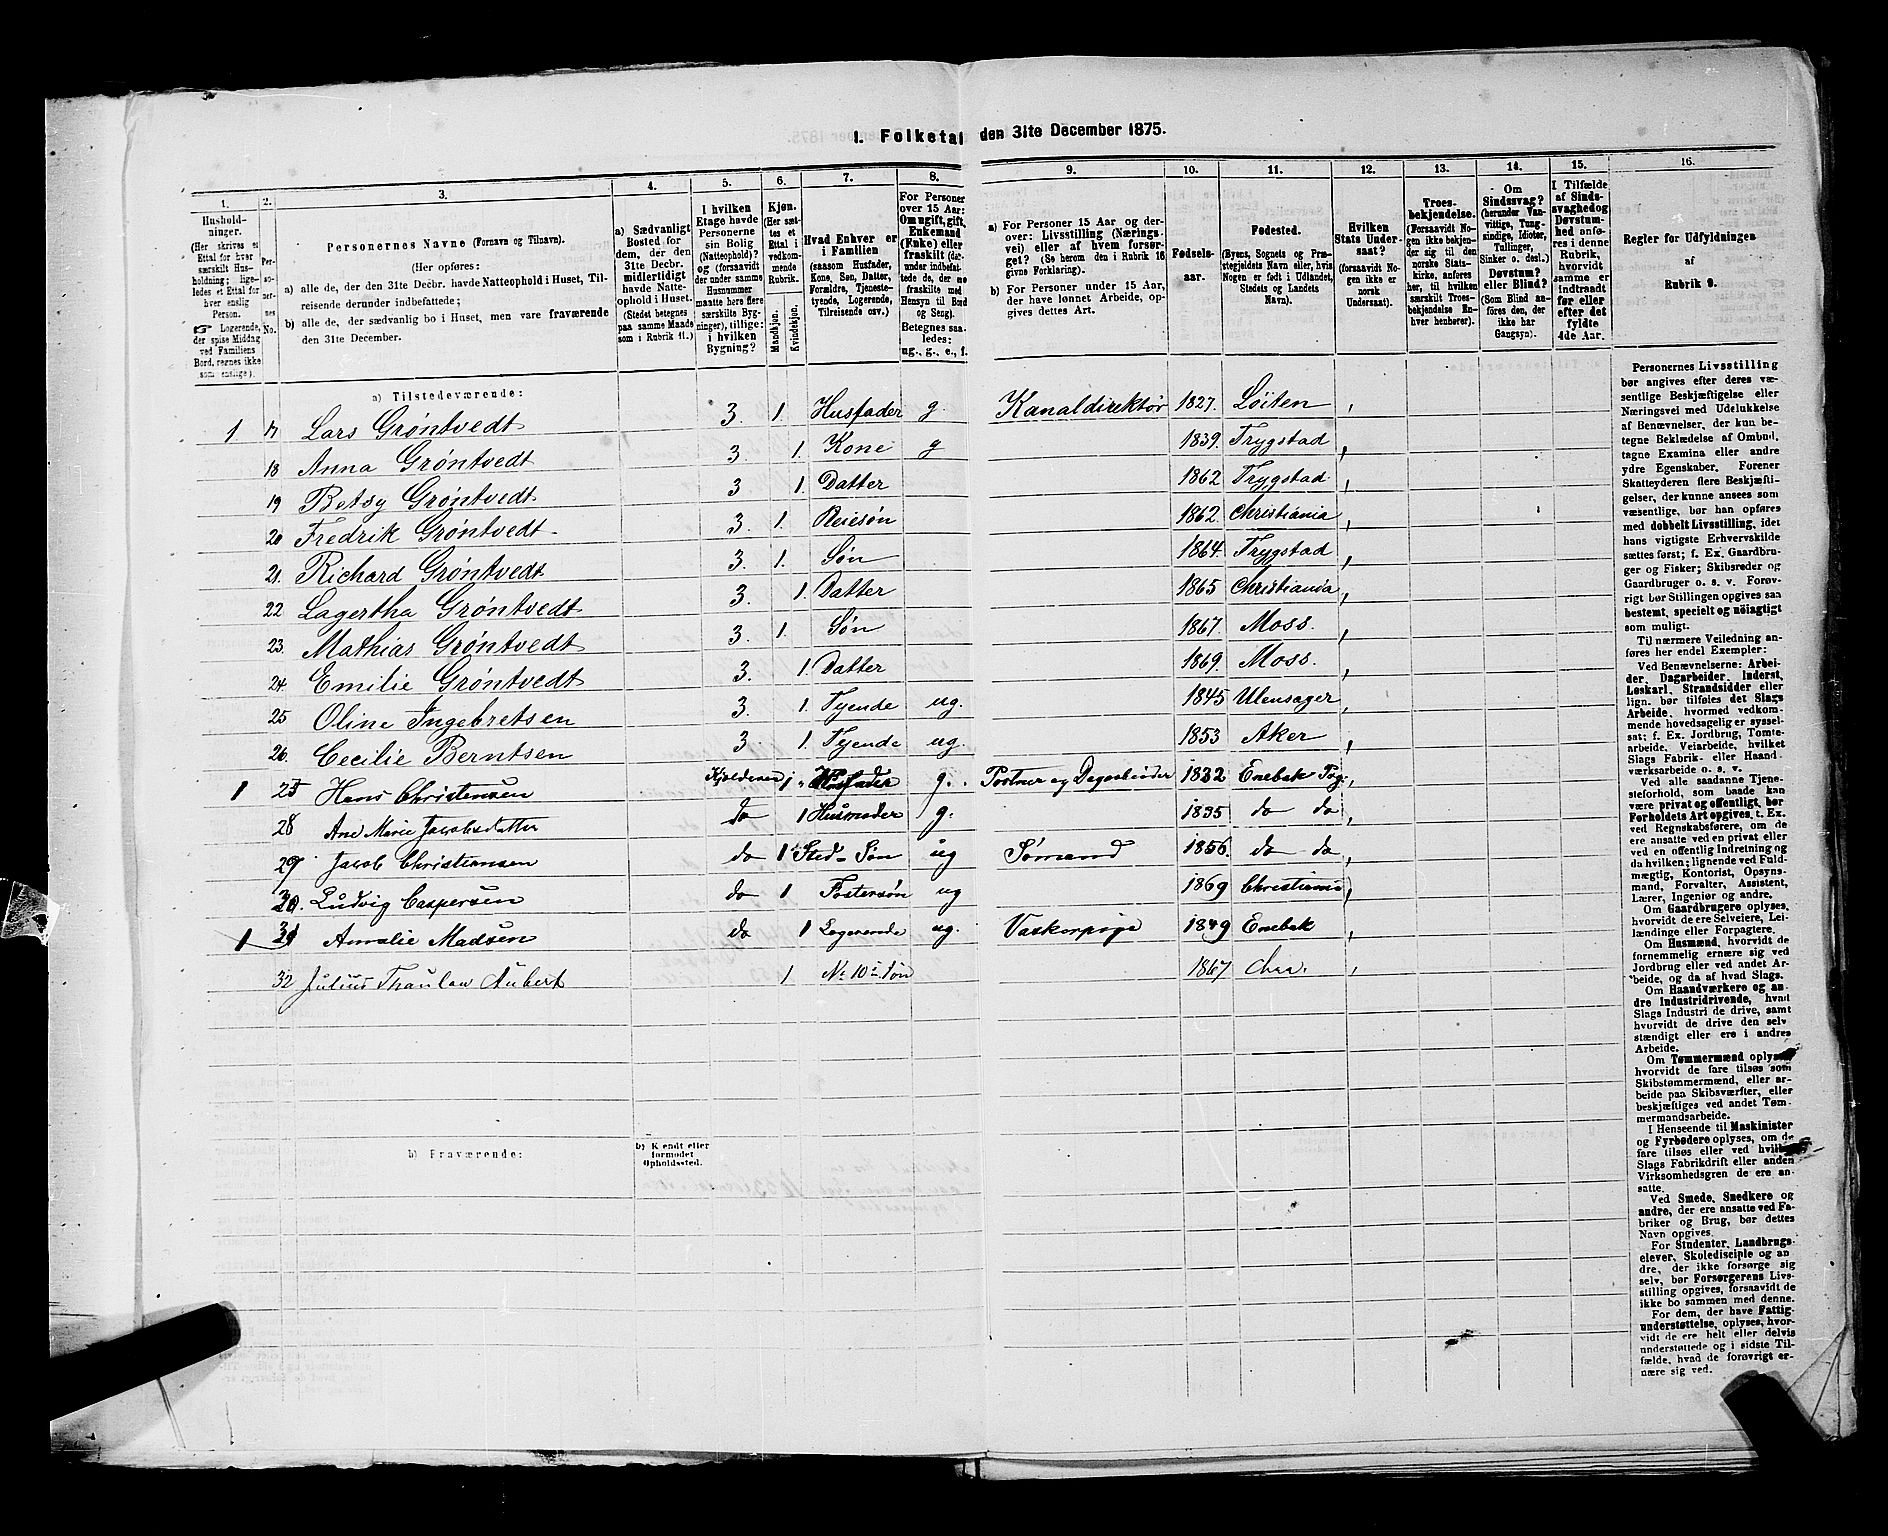 1. Folketal den 31te December 1875.
1. 2. 3. 4. 5. 6. 7. 8. 9. 10. 11. 12. 13. 14. 15. 16.
Hushold-
ninger.
(Her skrives et
Ettal for hver
særskilt Hus-
holdning; lige-
ledes et Ettal for
hver enslig
Person.
☞ Logerende,
der spise Middag
ved Familiens
Bord, regnes ikke
som enslige).
Personernes No.
Personernes Navne (Fornavn og Tilnavn).
(Her opføres:
a) alle de, der den 31te Decbr. havde Natteophold i Huset, Til-
reisende derunder indbefattede;
b) alle de, der sædvanlig bo i Huset, men vare fraværende
den 31te December.
a) Sædvanligt
Bosted for
dem, der den
31te Decbr.
midlertidigt
havde Natte-
ophold i Huset.
(Stedet betegnes
paa samme Maade
som i Rubrik 11.)
I hvilken
Etage havde
Personerne
sin Bolig
(Natteophold)?
og (forsaavidt
der under samme
Husnummer
maatte høre flere
særskilte Byg-
ninger), tillige:
i hvilken
Bygning?
Kjøn.
(Her sæt-
tes et
Ettal i
vedkom-
mende
Rubrik.
Mandkjøn. Kvindekjøn.
Hvad Enhver er
i Familien
(saasom Husfader,
Kone, Søn, Datter,
Forældre, Tjeneste-
tyende, Logerende,
Tilreisende osv.)
For Personer
over 15 Aar:
Om ugift, gift,
Enkemand
(Enke) eller
fraskilt (der-
under indbefat-
tede de, der ere
fraskilte med
Hensyn til Bord
og Seng).
Betegnes saa-
ledes:
ug., g., e., f.
a) For Personer 15 Aar og der-
over: Livsstilling (Nærings-
vei) eller af hvem forsør-
get? (Se herom den i Rubrik 16
givne Forklaring).
b) For Personer under 15 Aar,
der have lønnet Arbeide, op-
gives dettes Art.
Fødsels-
aar.
Fødested.
(Byens, Sognets og Præ-
stegjeldets Navn eller, hvis
Nogen er født i Udlandet,
Stedets og Landets
Navn).
Hvilken
Stats Under-
saat?
(forsaavidt No-
gen ikke er
norsk
Undersaat).
Troes-
bekjendelse.
(Forsaavidt No-
gen ikke bekjen-
der sig til den
norske Stats-
kirke, anføres
her, til hvilken
særskilt Troes-
bekjendelse En-
hver henhører).
Om
Sindssvag?
(herunder Van-
vittige, Tung-
sindige, Idioter,
Tullinger,
Sinker o. desl.)
Døvstum?
eller Blind?
(Som Blind an-
føres den, der
ikke har
Gangsyn).
I Tilfælde
af Sinds-
svaghed og
Døvstum-
hed anfø-
res i denne
Rubrik,
hvorvidt
samme er
indtraadt
før eller
efter det
fyldte
4de Aar.
Regler for Udfyldningen
af
Rubrik 9.
a) Tilstedeværende:
1 17 Lars Grøntvedt 3 1. Husfader g. Kanaldirektør 1827. Løiten
18 Anna Grøntvedt 3. 1. Kone g 1839. Trygstad
19 Betsy Grøntvedt 3 1. Datter 1862 Trygstad
20 Fredrik Grøntvedt 3. 1. Pleiesøn 1862. Christiania
21. Richard Grøntvedt 3. 1. Søn 1864. Trygstad
22 Lagertha Grøntvedt 3. 1. Datter 1865 Christiania
23. Mathias Grøntvedt 3. 1. Søn 1867. Moss.
24. Emilie Grøntvedt 3. 1. Datter 1869. Moss.
25 Oline Ingebretsen 3. 1. Tyende ug. 1845 Ulensager
26. Cecilie Berntsen 3. 1. Tyende ug. 1853 Aker
1 27 Hans Christensen Kjelderen 1 Husfader g. Portner og Dagarbeider 1832 Enebak Pg:
28 Ane Marie Jacobsdatter do 1 Husmoder g. 1835 do do
29 Jacob Christiansen do 1 Sted-Søn ug Sømand 1856. do do
30. Ludvig Caspersen do 1 Fostersøn ug 1869 Christiania
1 31 Amalie Madsen do 1 Logerende ug. Vaskerpige 1849 Enebak
32 Julius Thaulow Aubert 1 No 10s Søn 1867 Chra.
b) Fraværende:
b) Kjendt eller
formodet
Opholdssted.
Personernes Livsstilling
bør angives efter deres væ-
sentlige Beskjæftigelse eller
Næringsvei med Udelukkelse
af Benævnelser, der kun be-
tegne Beklædelse af Ombud,
tagne Examina eller andre
ydre Egenskaber. Forener
Skatteyderen flere Beskjæfti-
gelser, der kunne ansees som
væsentlige, bør han opføres
med dobbelt Livsstilling, idet
hans vigtigste Erhvervskilde
sættes først; f. Ex. Gaardbru-
ger og Fisker; Skibsreder og
Gaardbruger o. s. v. Forøv-
rigt bør Stillingen opgives saa
bestemt, specielt og nöiagtigt
som muligt.
Til nærmere Veiledning an-
føres her endel Exempler:
Ved Benævnelserne: Arbei-
der, Dagarbeider, Inderst,
Løskarl, Strandsidder eller
lign. bør tilføies det Slags
Arbeide, hvormed vedkom-
mende hovedsagelig er syssel-
sat; f. Ex. Jordbrug, Tomte-
arbeide, Veiarbeide, hvilket
Slags Fabrik- eller Haand-
værksarbeide o. s. v.
Ved alle saadanne Tjene-
steforhold, som baade kan
være privat og offentligt, bør
Forholdets Art opgives. t. Ex.
ved Regnskabsførere, om de
ere ansatte ved en privat eller
ved en offentlig Indretning og
da hvilken; lignende ved Fuld-
mægtig, Kontorist, Opsyns-
mand, Forvalter, Assistent,
Lærer, Ingeniør og andre.
Om Gaardbrugere oplyses,
hvorvidt de ere Selveiere, Lei-
lændinge eller Forpagtere.
Om Husmænd, hvorvidt de
fornemmelig ernære sig ved
Jordbrug eller ved andet Ar-
beide, og da af hvad Slags.
Om Haandværkere og an-
dre Industridrivende, hvad
Slags Industri de drive, samt
hvorvidt de drive den selv-
stændigt eller ere i andres
Arbeide.
Om Tømmermænd oplyses,
hvorvidt de fare tilsøs som
Skibstømmermænd, eller ar-
beide paa Skibsværfter, eller
beskjæftiges ved andet Tøm-
mermandsarbeide.
I Henseende til Maskinister
og Fyrbødere oplyses, om de
fare tilsøs eller ved hvilket
Slags Fabrikdrift eller anden
Virksomhedsgren de ere an-
satte.
Ved Smede, Snedkere og
andre, der ere ansatte ved Fa-
briker og Brug, bør dettes
Navn opgives.
For Studenter, Landbrugs-
elever, Skoledisciple og an-
dre, der ikke forsørge sig
selv, bør Forsørgerens Livs-
stilling opgives, forsaavidt de
ikke bo sammen med denne.
For dem, der have Fattig-
understøttelse, oplyses, hvor-
vidt de ere helt eller delvis
understøttede og i sidste Til-
fælde, hvad de forøvrigt er-
nære sig ved.